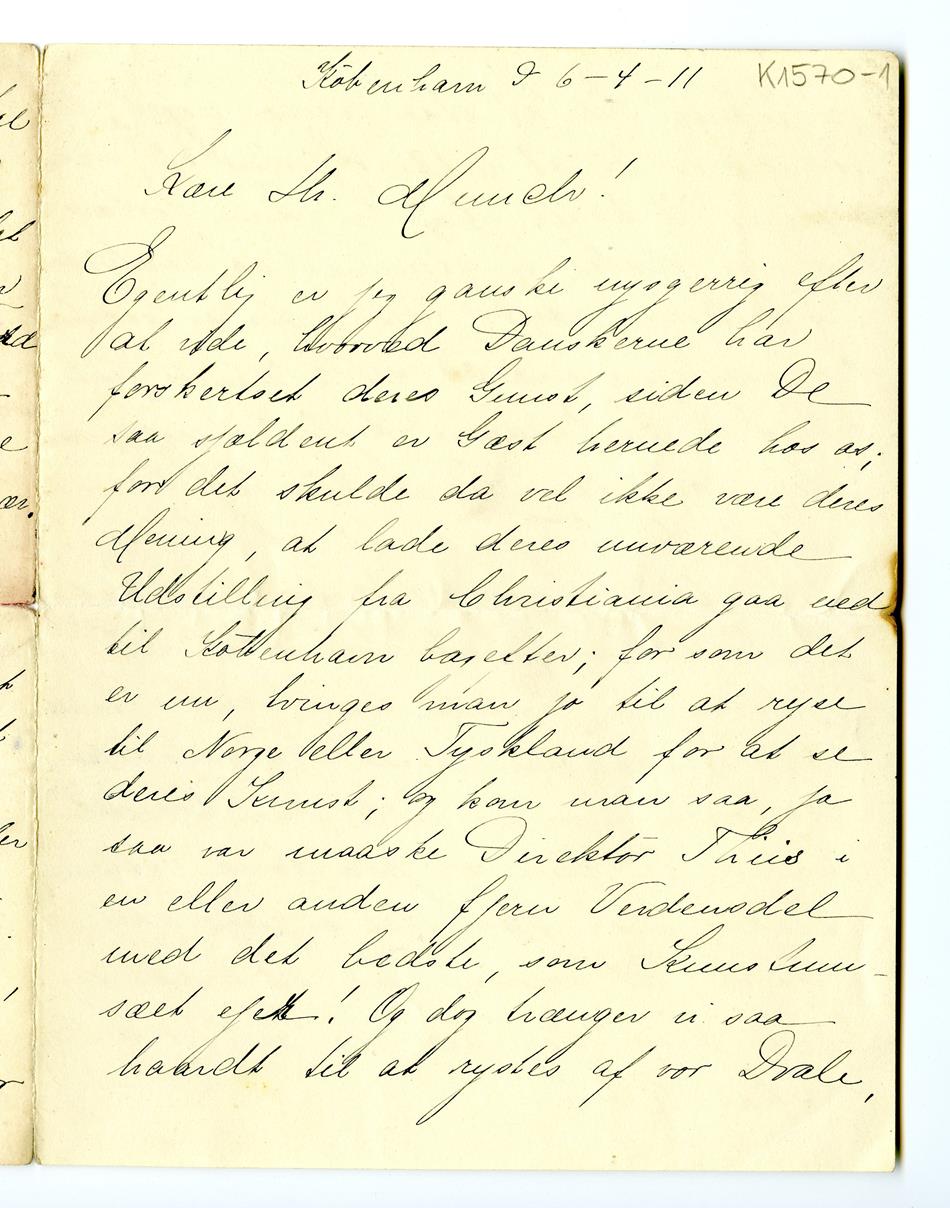 København Ø 6-4-11 K1570-1
Kære Hr. Munch!
Egentlig er jeg ganske nysgerrig efter
at vide, hvorved Danskerne har
forskertset deres Gunst, siden De
saa sjældent er Gæst hernede hos os;
for det skulde da vel ikke være deres
Mening, at lade deres nuværende
Udstilling fra Christiania gaa ned
til København bagefter; for som det
er nu, tvinges man jo til at rejse
til Norge eller Tyskland for at se
deres Kunst; og kom man saa, ja
saa var maaske Direktør Thiis i
en eller anden fjern Verdensdel
med det bedste, som Kunstmu-
sæet ejer! Og dog trænger vi saa
haardt til at rystes af vor Dvale,